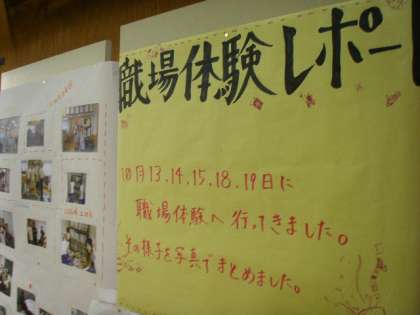 職場体験レポー
10月13,14,15,18,19日に
職場体験へ行ってきました。
その様子を写真でまとめました。